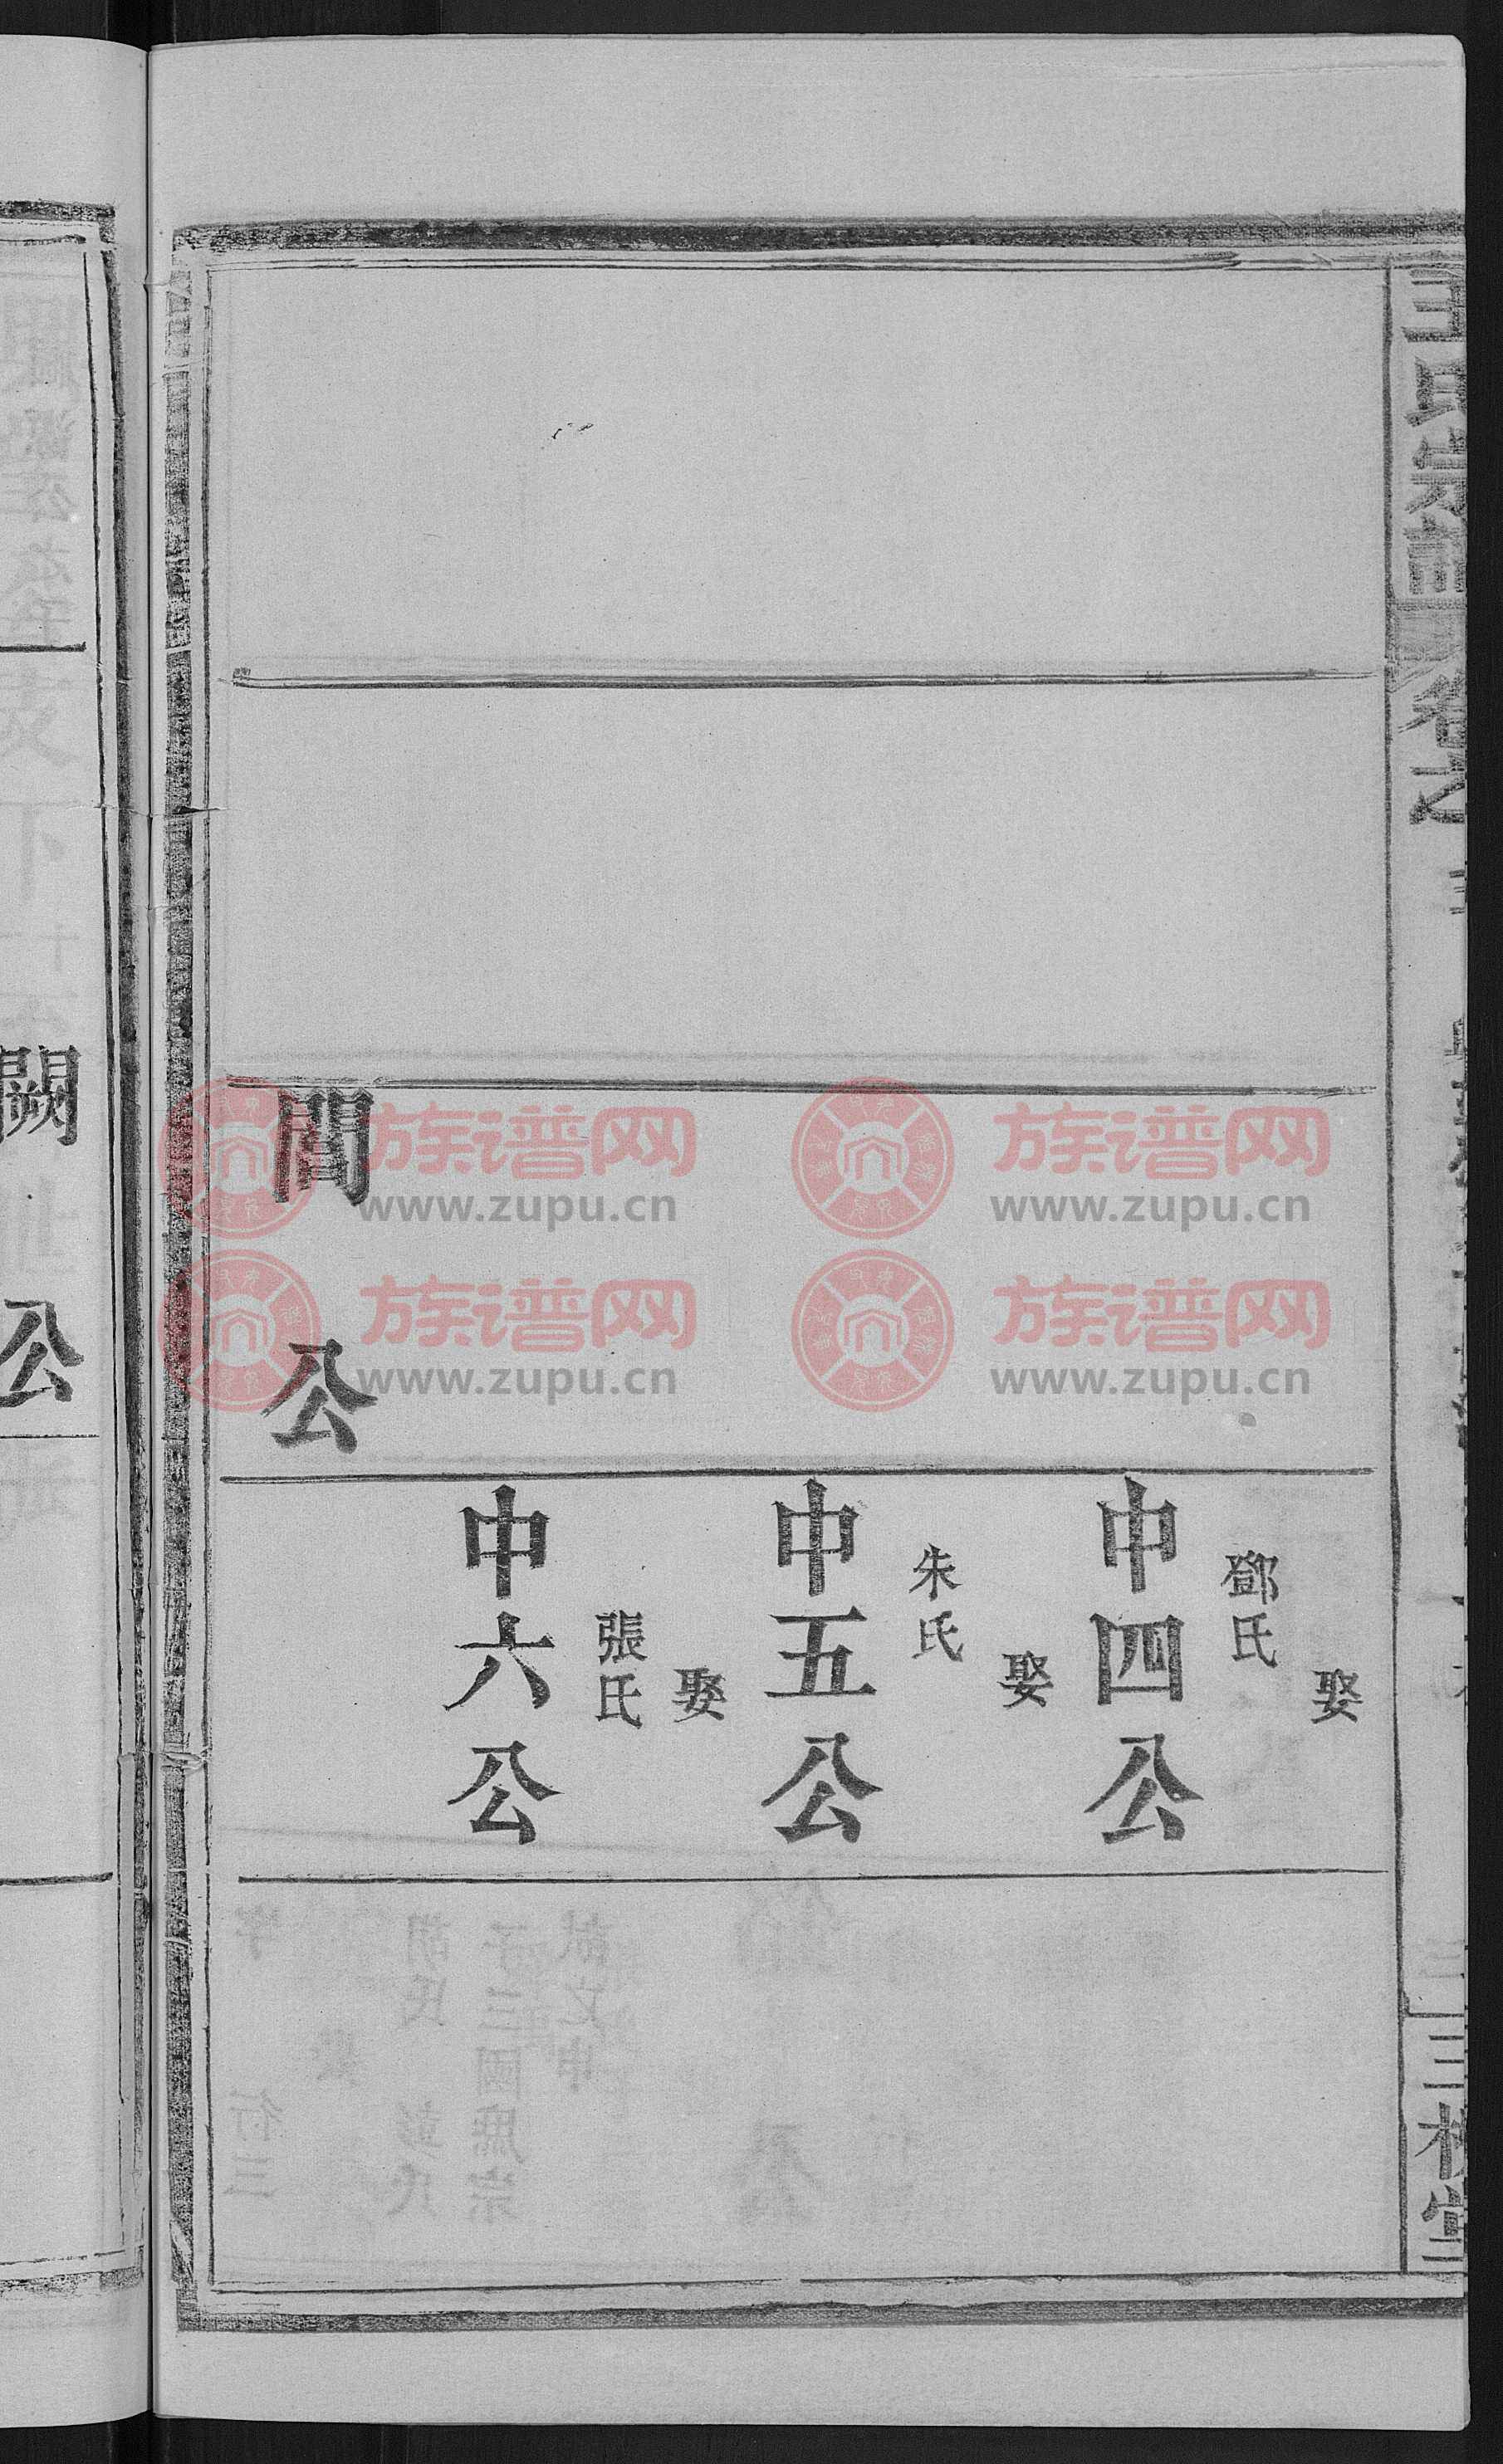 王氏宗譜
卷之
三槐堂
娶
鄧氏
中四公
娶
朱氏
中五公
娶
張氏
中六公
間公
闕公
族谱网
www.zupu.cn
族谱网
www.zupu.cn
族谱网
www.zupu.cn
族谱网
www.zupu.cn